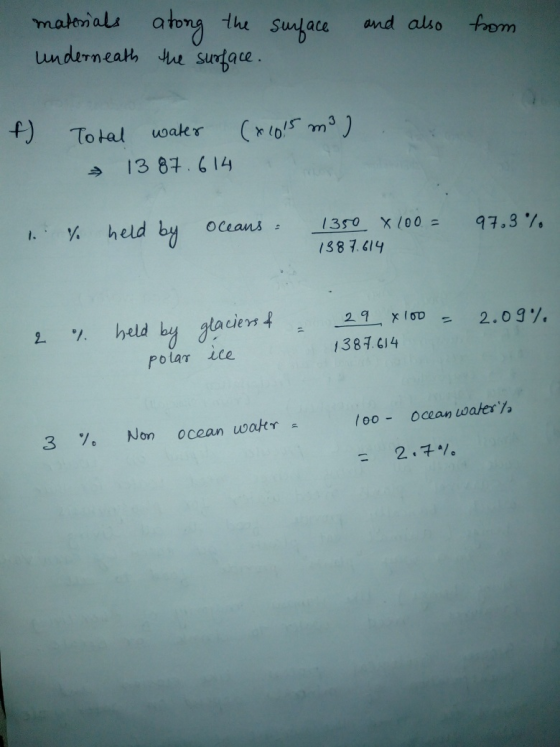 materials along the surface and also from
underneath the surface.
f) Total water (×10¹⁵ m³)
⇒ 1387.614
1. % held by oceans = 1350 / 1387.614 × 100 = 97.3%
2 % held by glaciers & polar ice = 29 / 1387.614 × 100 = 2.09%
3 % Non ocean water = 100 - Ocean water%
= 2.7%